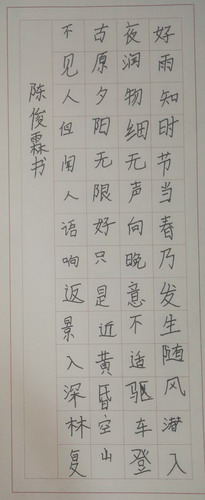 好雨知时节当春乃发生随风潜入
夜润物细无声向晚意不适驱车登
古原夕阳无限好只是近黄昏空山
不见人但闻人语响返景入深林复
陈俊霖书